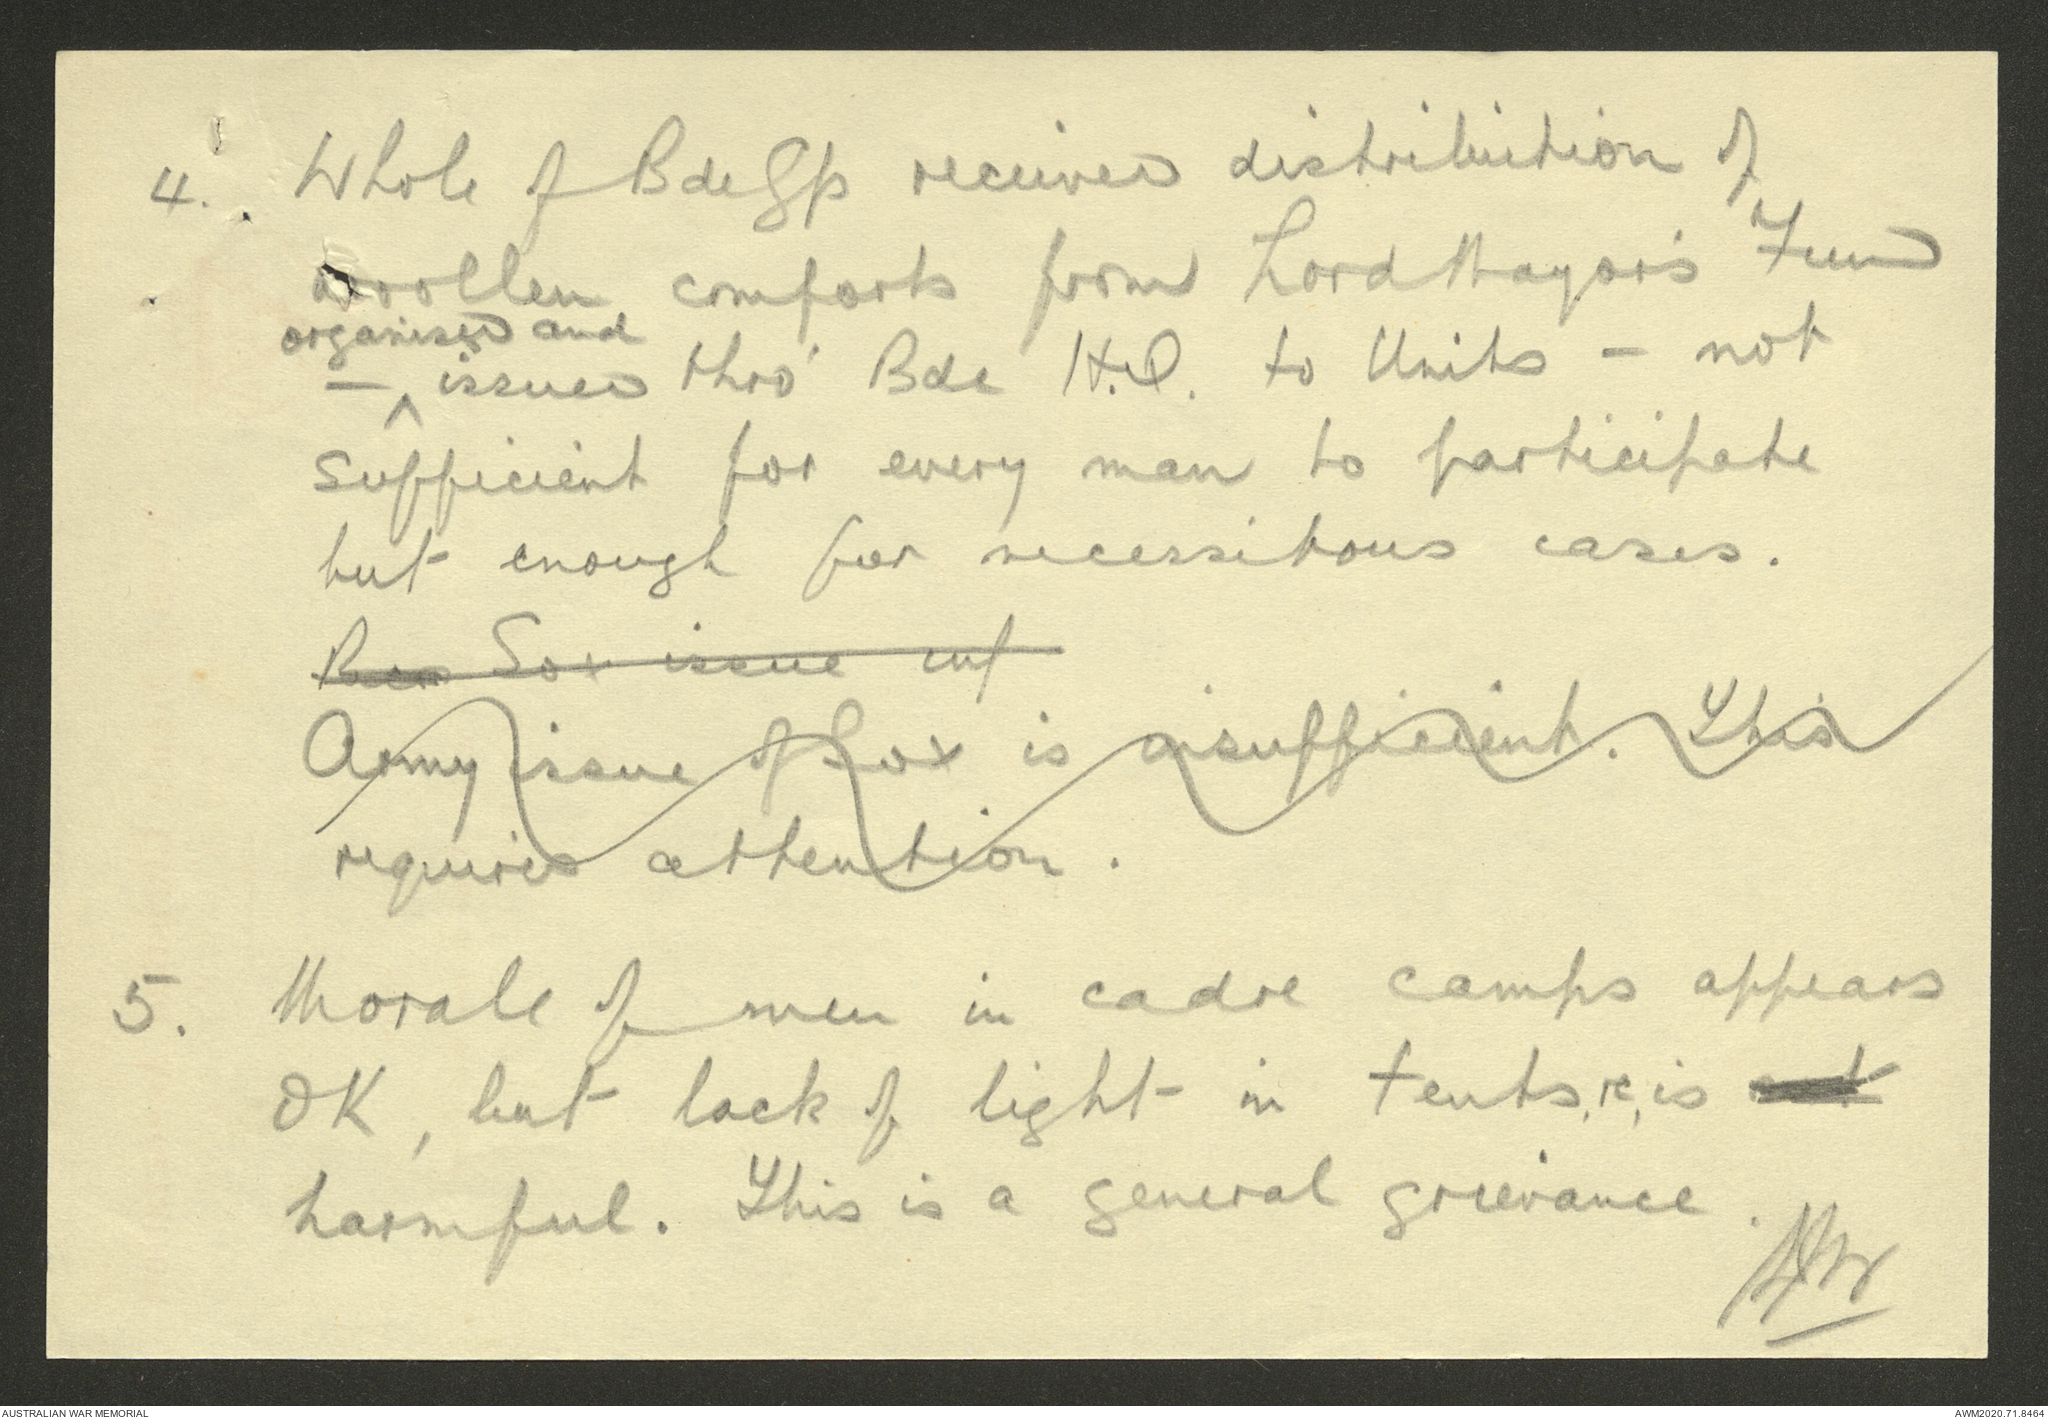 4. Whole of Bde Gp received distribution of
woollen comforts from Lord Mayor's Fund
organised and
- ^ issued thro' Bde H.Q. to Units - not
sufficient for every man to participate
but enough for necessitous cases.
Sox issue inf
Army issue of Sox is insufficient. This
requires attention.
5. Morale of men in cadre camps appears
OK, but lack of light in tents, rc, is
harmful. This is a general grievance.
AUSTRALIAN WAR MEMORIAL
AWM2020.71.8464